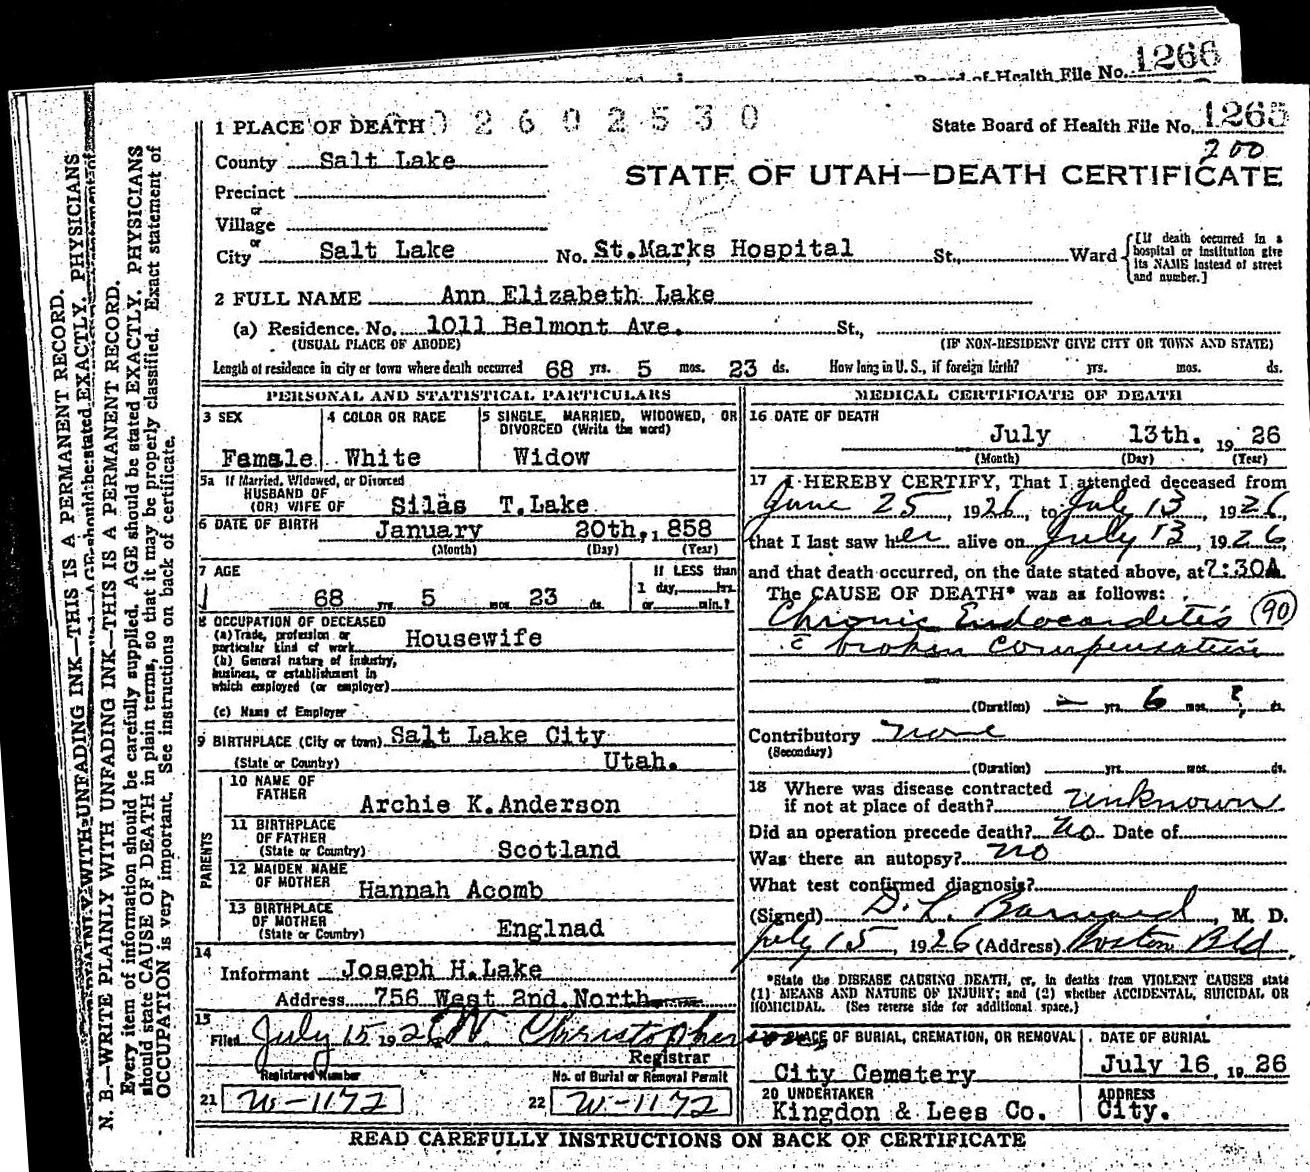 1266
Board of Health File No.
1 PLACE OF DEATH 02602530
State Board of Health File No. 1265
200
County Salt Lake
STATE OF UTAH—DEATH CERTIFICATE
Precinct
or
Village
or
City Salt Lake No. St.Marks Hospital St., Ward {[If death occurred in a hospital or institution give its NAME instead of street and number.]
2 FULL NAME Ann Elizabeth Lake
(a) Residence. No. 1011 Belmont Ave. St.,
(USUAL PLACE OF ABODE) (IF NON-RESIDENT GIVE CITY OR TOWN AND STATE)
Length of residence in city or town where death occurred 68 yrs. 5 mos. 23 ds. How long in U. S., if foreign birth? yrs. mos. ds.
PERSONAL AND STATISTICAL PARTICULARS
3 SEX
Famale
4 COLOR OR RACE
White
5 SINGLE, MARRIED, WIDOWED, OR
DIVORCED (Write the word)
Widow
5a If Married, Widowed, or Divorced
HUSBAND OF
(OR) WIFE OF Silas T.Lake
6 DATE OF BIRTH January 20th,1858
(Month) (Day) (Year)
7 AGE
68 yrs. 5 mos. 23 ds.
If LESS than
1 day, hrs.
or min.?
8 OCCUPATION OF DECEASED
(a) Trade, profession or
particular kind of work Housewife
(b) General nature of industry,
business, or establishment in
which employed (or employer)
(c) Name of Employer
9 BIRTHPLACE (City or town) Salt Lake City
(State or Country) Utah.
PARENTS
10 NAME OF
FATHER Archie K.Anderson
11 BIRTHPLACE
OF FATHER
(State or Country) Scotland
12 MAIDEN NAME
OF MOTHER Hannah Acomb
13 BIRTHPLACE
OF MOTHER
(State or Country) Englnad
14
Informant Joseph H.Lake
Address 756 West 2nd.North
15
Filed July 15 1926 W. Christopherson
Registrar
Registered Number No. of Burial or Removal Permit
21 W-1172 22 W-1172
MEDICAL CERTIFICATE OF DEATH
16 DATE OF DEATH
July 13th. 19 26
(Month) (Day) (Year)
17 I HEREBY CERTIFY, That I attended deceased from
June 25, 1926, to July 13, 1926,
that I last saw her alive on July 13, 1926,
and that death occurred, on the date stated above, at 7:30A.
The CAUSE OF DEATH* was as follows:
Chronic Endocarditis (90)
c̄ broken compensation
(Duration) — yrs. 6 mos. ? ds.
Contributory none
(Secondary)
(Duration) yrs. mos. ds.
18 Where was disease contracted
if not at place of death? unknown
Did an operation precede death? No Date of
Was there an autopsy? no
What test confirmed diagnosis?
(Signed) D. L. Barnard, M. D.
July 15, 1926 (Address) Boston Bld.
*State the DISEASE CAUSING DEATH, or, in deaths from VIOLENT CAUSES state
(1) MEANS AND NATURE OF INJURY; and (2) whether ACCIDENTAL, SUICIDAL OR
HOMICIDAL. (See reverse side for additional space.)
19 PLACE OF BURIAL, CREMATION, OR REMOVAL
City Cemetery
DATE OF BURIAL
July 16, 19 26
20 UNDERTAKER
Kingdon & Lees Co.
ADDRESS
City.
READ CAREFULLY INSTRUCTIONS ON BACK OF CERTIFICATE
N. B.—WRITE PLAINLY WITH UNFADING INK—THIS IS A PERMANENT RECORD.
Every item of information should be carefully supplied. AGE should be stated EXACTLY. PHYSICIANS
should state CAUSE OF DEATH in plain terms, so that it may be properly classified. Exact statement of
OCCUPATION is very important. See instructions on back of certificate.